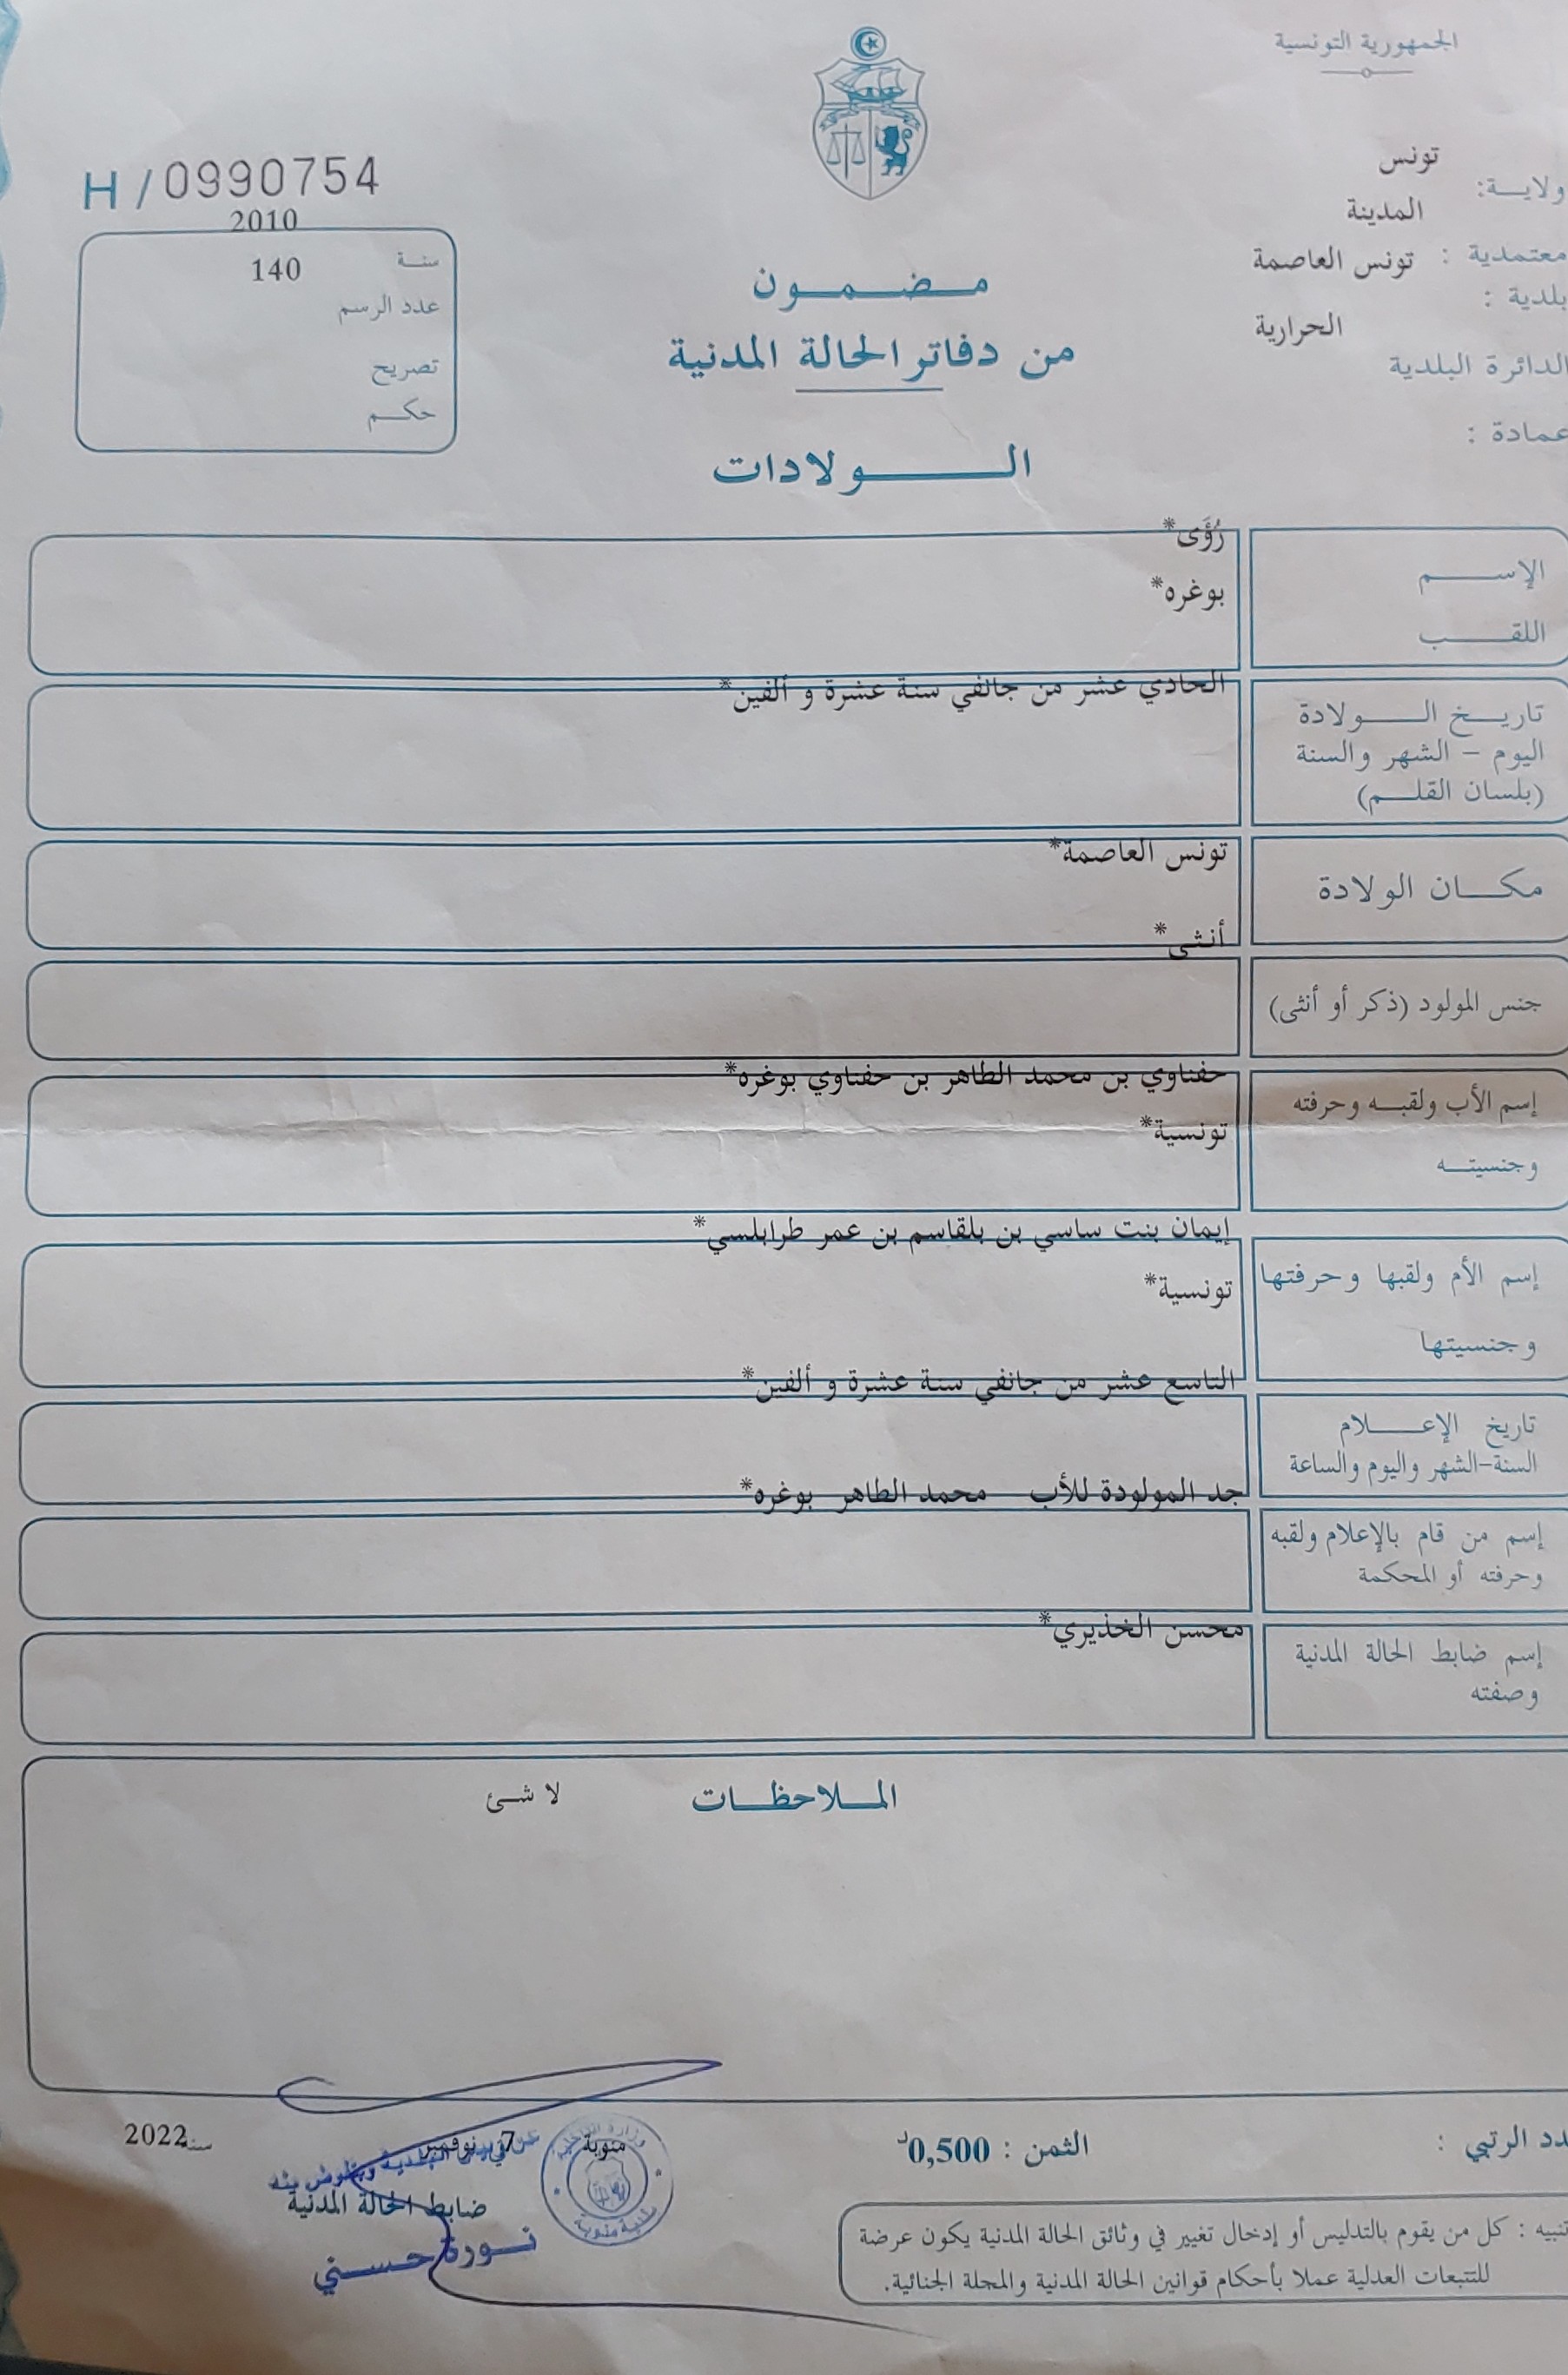 الجمهورية التونسية
ولاية: تونس
المدينة
معتمدية : تونس العاصمة
بلدية :
الحرارية
الدائرة البلدية
عمادة :
H / 0990754
2010
سنة
140
عدد الرسم
تصريح
حكم
مضمون
من دفاتر الحالة المدنية
الولادات
رُؤَى*
الإسم
بوغره*
اللقب
الحادي عشر من جانفي سنة عشرة و ألفين*
تاريخ الولادة
اليوم - الشهر والسنة
(بلسان القلم)
تونس العاصمة*
مكان الولادة
أنثى*
جنس المولود (ذكر أو أنثى)
حفناوي بن محمد الطاهر بن حفناوي بوغره*
إسم الأب ولقبه وحرفته
تونسية*
وجنسيته
إيمان بنت ساسي بن بلقاسم بن عمر طرابلسي*
إسم الأم ولقبها وحرفتها
تونسية*
وجنسيتها
التاسع عشر من جانفي سنة عشرة و ألفين*
تاريخ الإعلام
السنة-الشهر واليوم والساعة
جد المولودة للأب محمد الطاهر بوغره*
إسم من قام بالإعلام ولقبه
وحرفته أو المحكمة
محسن الخذيري*
إسم ضابط الحالة المدنية
وصفته
الملاحظات
لا شئ
دد الرتبي :
الثمن : 0,500د
منوبة في 7 نوفمبر سنة 2022
عن رئيس البلدية وبتفويض منه
ضابط الحالة المدنية
نورة حسني
وزارة الداخلية
بلدية منوبة
تنبيه : كل من يقوم بالتدليس أو إدخال تغيير في وثائق الحالة المدنية يكون عرضة
للتتبعات العدلية عملا بأحكام قوانين الحالة المدنية والمجلة الجنائية.